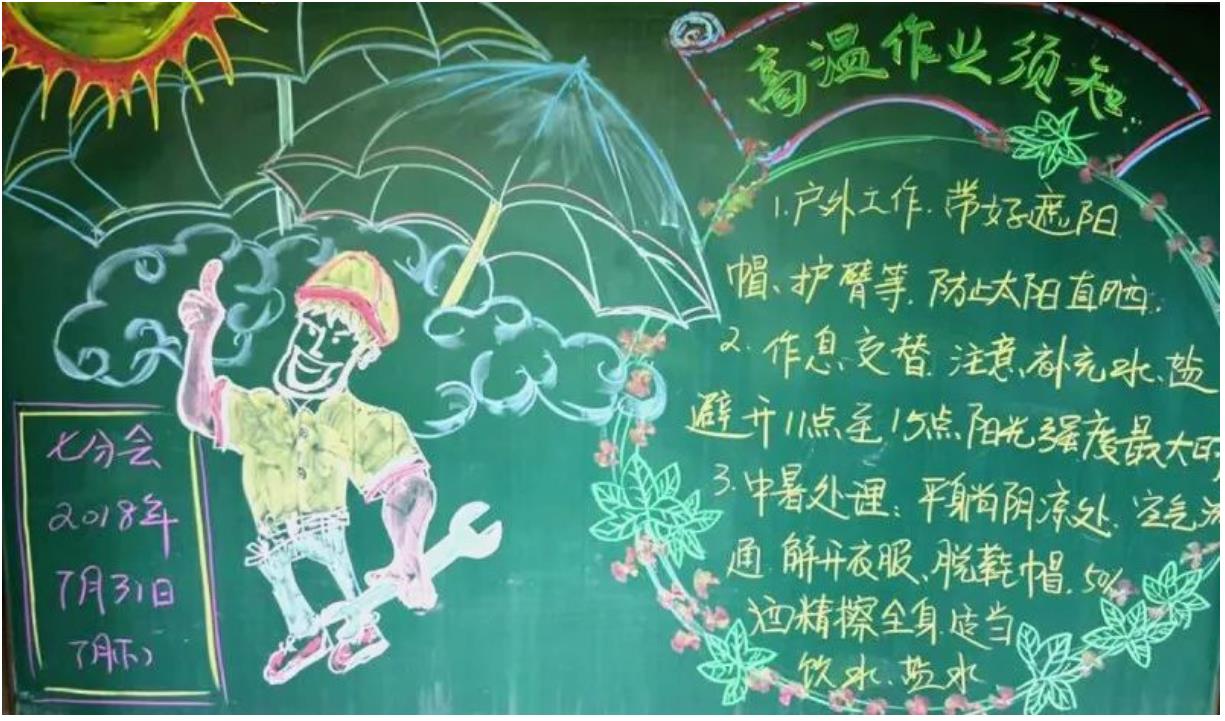 高温作业须知
1.户外工作.带好遮阳
帽、护臂等.防止太阳直晒.
2.作息交替.注意补充水、盐
避开11点至15点阳光强度最大时
3.中暑处理:平躺阴凉处.空气流
通.解开衣服、脱鞋帽.50%
酒精擦全身.适当
饮水、盐水
七分会
2018年
7月31日
7月